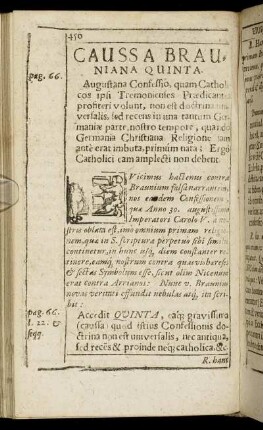 450
CAUSSA BRAU-
NIANA QUINTA.
pag. 66.
Augustana Confessio, quam Catholi-
cos ipsi Tremonienses Prædicantes
profiteri volunt, non est doctrina uni-
versalis, sed recens in una tantum Ger-
maniæ parte, nostro tempore, quando
Germania Christiana Religione jam
antè erat imbuta, primùm nata: Ergò
Catholici eam amplecti non debent.
Vicimus hactenus contra
Braunium fulsinarrantem,
nos eandem Confessionem,
qua Anno 30. augustissimo
Imperatori Carolo V. à no-
stris oblata est, imò omnium primam religio-
nem, quæ in S. scriptura perpetuò sibi similis
continetur, in hunc usq; diem constanter re-
tinere, eamq; nostrum contra quasvis hæreses
& sectas Symbolum esse, sicut olim Nicenum
erat contra Arrianos: Nunc v. Braunius
novas veritati effundit nebulas atq; ita scri-
bit:
pag. 66.
l. 22. &
seqq.
Accedit QUINTA, eaq; gravissima
(caussa) quod istius Confessionis do-
ctrina non est universalis, nec antiqua,
sed recēs & proinde neq; catholica. &c.
R. hanc